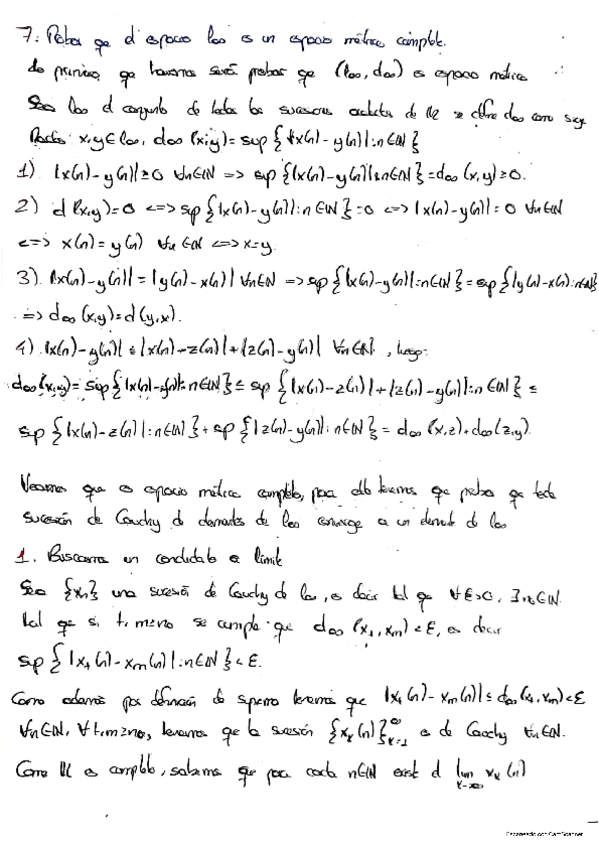 7. Probar que el espacio l∞ es un espacio métrico completo.
Lo primero que haremos será probar que (l∞, d∞) es espacio métrico
Sea l∞ el conjunto de todas las sucesiones acotadas de ℝ se define d∞ como sigue
Dados x,y∈l∞, d∞(x,y)=sup{|x(n)-y(n)|:n∈ℕ}
1) |x(n)-y(n)|≥0 ∀n∈ℕ => sup{|x(n)-y(n)|:n∈ℕ}=d∞(x,y)≥0.
2) d(x,y)=0 <=> sup{|x(n)-y(n)|:n∈ℕ}=0 <=> |x(n)-y(n)|=0 ∀n∈ℕ
<=> x(n)=y(n) ∀n∈ℕ <=> x=y.
3) |x(n)-y(n)|=|y(n)-x(n)| ∀n∈ℕ => sup{|x(n)-y(n)|:n∈ℕ}=sup{|y(n)-x(n):n∈ℕ}
=> d∞(x,y)=d(y,x).
4) |x(n)-y(n)|≤|x(n)-z(n)|+|z(n)-y(n)| ∀n∈ℕ, luego:
d∞(x,y)=sup{|x(n)-y(n)|:n∈ℕ}≤sup{|x(n)-z(n)|+|z(n)-y(n)|:n∈ℕ}≤
sup{|x(n)-z(n)|:n∈ℕ}+sup{|z(n)-y(n)|:n∈ℕ}=d∞(x,z)+d∞(z,y).
Veamos que es espacio métrico completo, para ello tenemos que probar que toda
sucesión de Cauchy de elementos de l∞ converge a un elemento de l∞
1. Buscamos un candidato a límite
Sea {xₙ} una sucesión de Cauchy de l∞, es decir tal que ∀ε>0, ∃n₀∈ℕ
tal que si t,m≥n₀ se cumple que d∞(xₜ,xₘ)<ε, es decir
sup{|xₜ(n)-xₘ(n)|:n∈ℕ}<ε.
Como además por definición de supremo tenemos que |xₜ(n)-xₘ(n)|≤d∞(xₜ,xₘ)<ε
∀n∈ℕ, ∀t,m≥n₀, tenemos que la sucesión {xₖ(n)}ₖ₌₁^∞ es de Cauchy ∀n∈ℕ.
Como ℝ es completo, sabemos que para cada n∈ℕ existe el lim xₖ(n)
k→∞
Escaneado con CamScanner